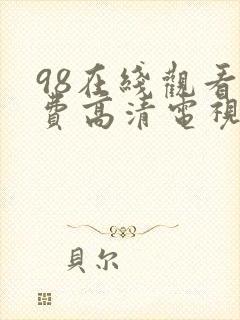 98在綫觀看
費高清電視
貝尔